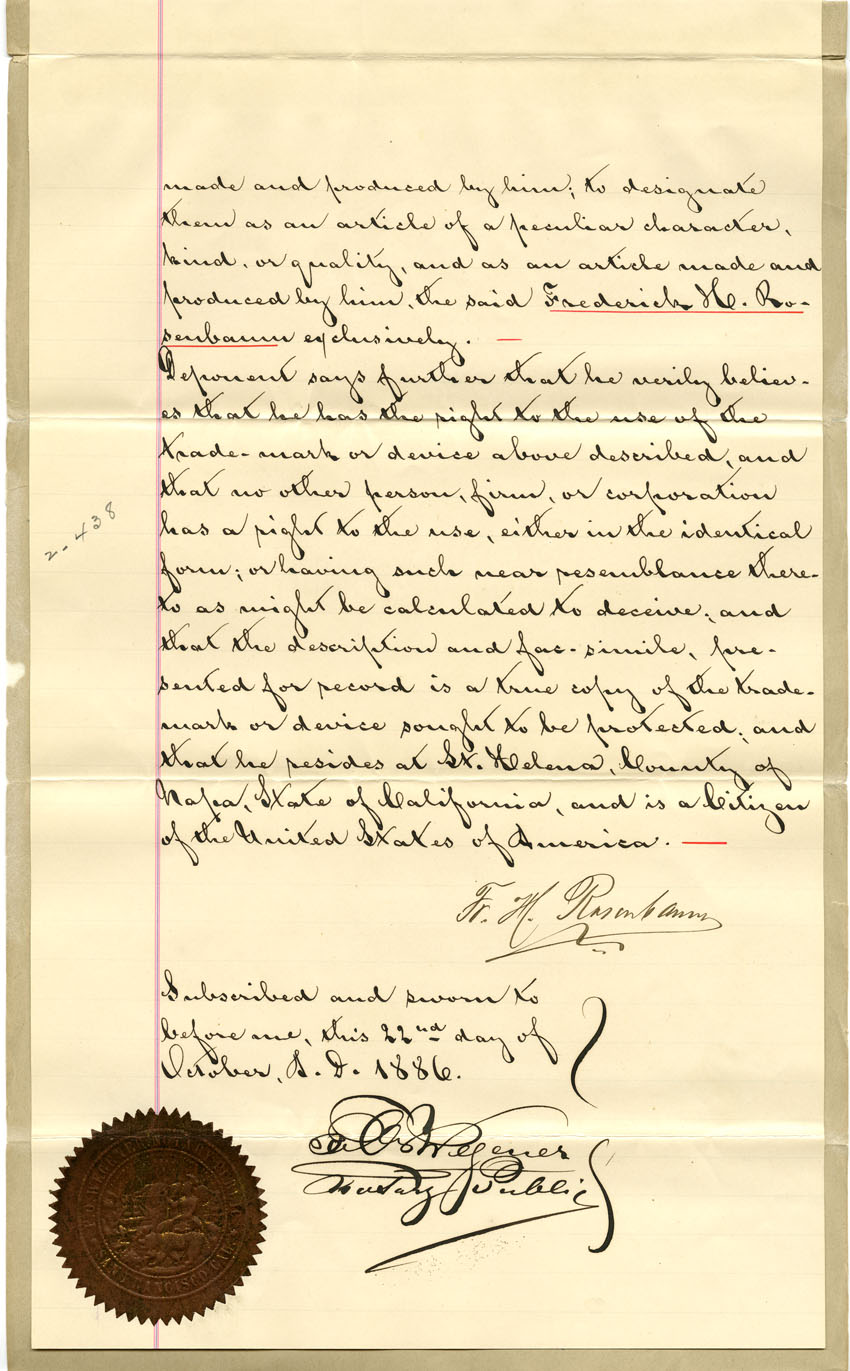 made and produced by him; to designate
them as an article of a peculiar character,
kind, or quality, and as an article made and
produced by him, the said Frederick H. Ro-
senbaum exclusively. —
Deponent says further that he verily believ-
es that he has the right to the use of the
trade-mark or device above described, and
that no other person, firm, or corporation
has a right to the use, either in the identical
form; or having such near resemblance there-
to as might be calculated to deceive; and
that the description and fac-simile, pre-
sented for record is a true copy of the trade-
mark or device sought to be protected; and
that he resides at St. Helena, County of
Napa, State of California, and is a Citizen
of the United States of America. —
2-438
Fr. H. Rosenbaum
Subscribed and sworn to
before me, this 22nd day of
October, A. D. 1886.
Wegener
Notary Public
SAN FRANCISCO CAL.